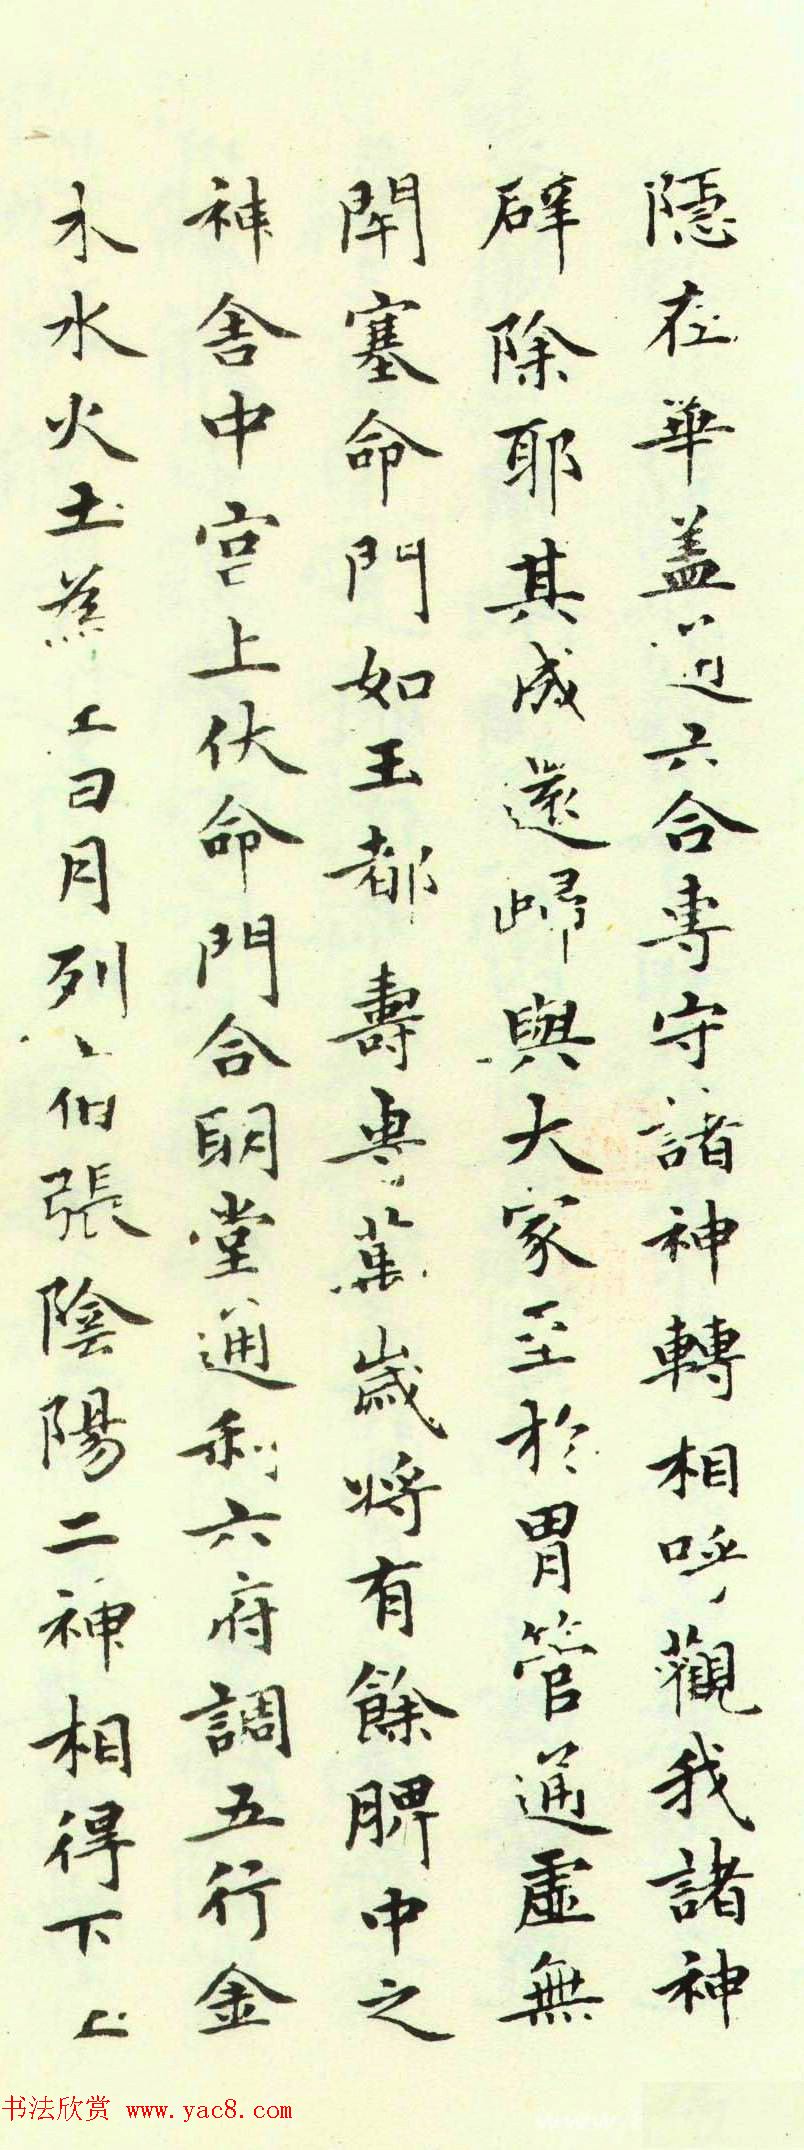 隱在華盖通六合專守諸神轉相呼觀我諸神
辟除耶其成還歸與大家至於胃管通虛無
閇塞命門如玉都壽專萬歲將有餘脾中之
神舍中宮上伏命門合明堂通利六府調五行金
木水火土為王日月列宿張陰陽二神相得下上
书法欣赏 www.yac8.com